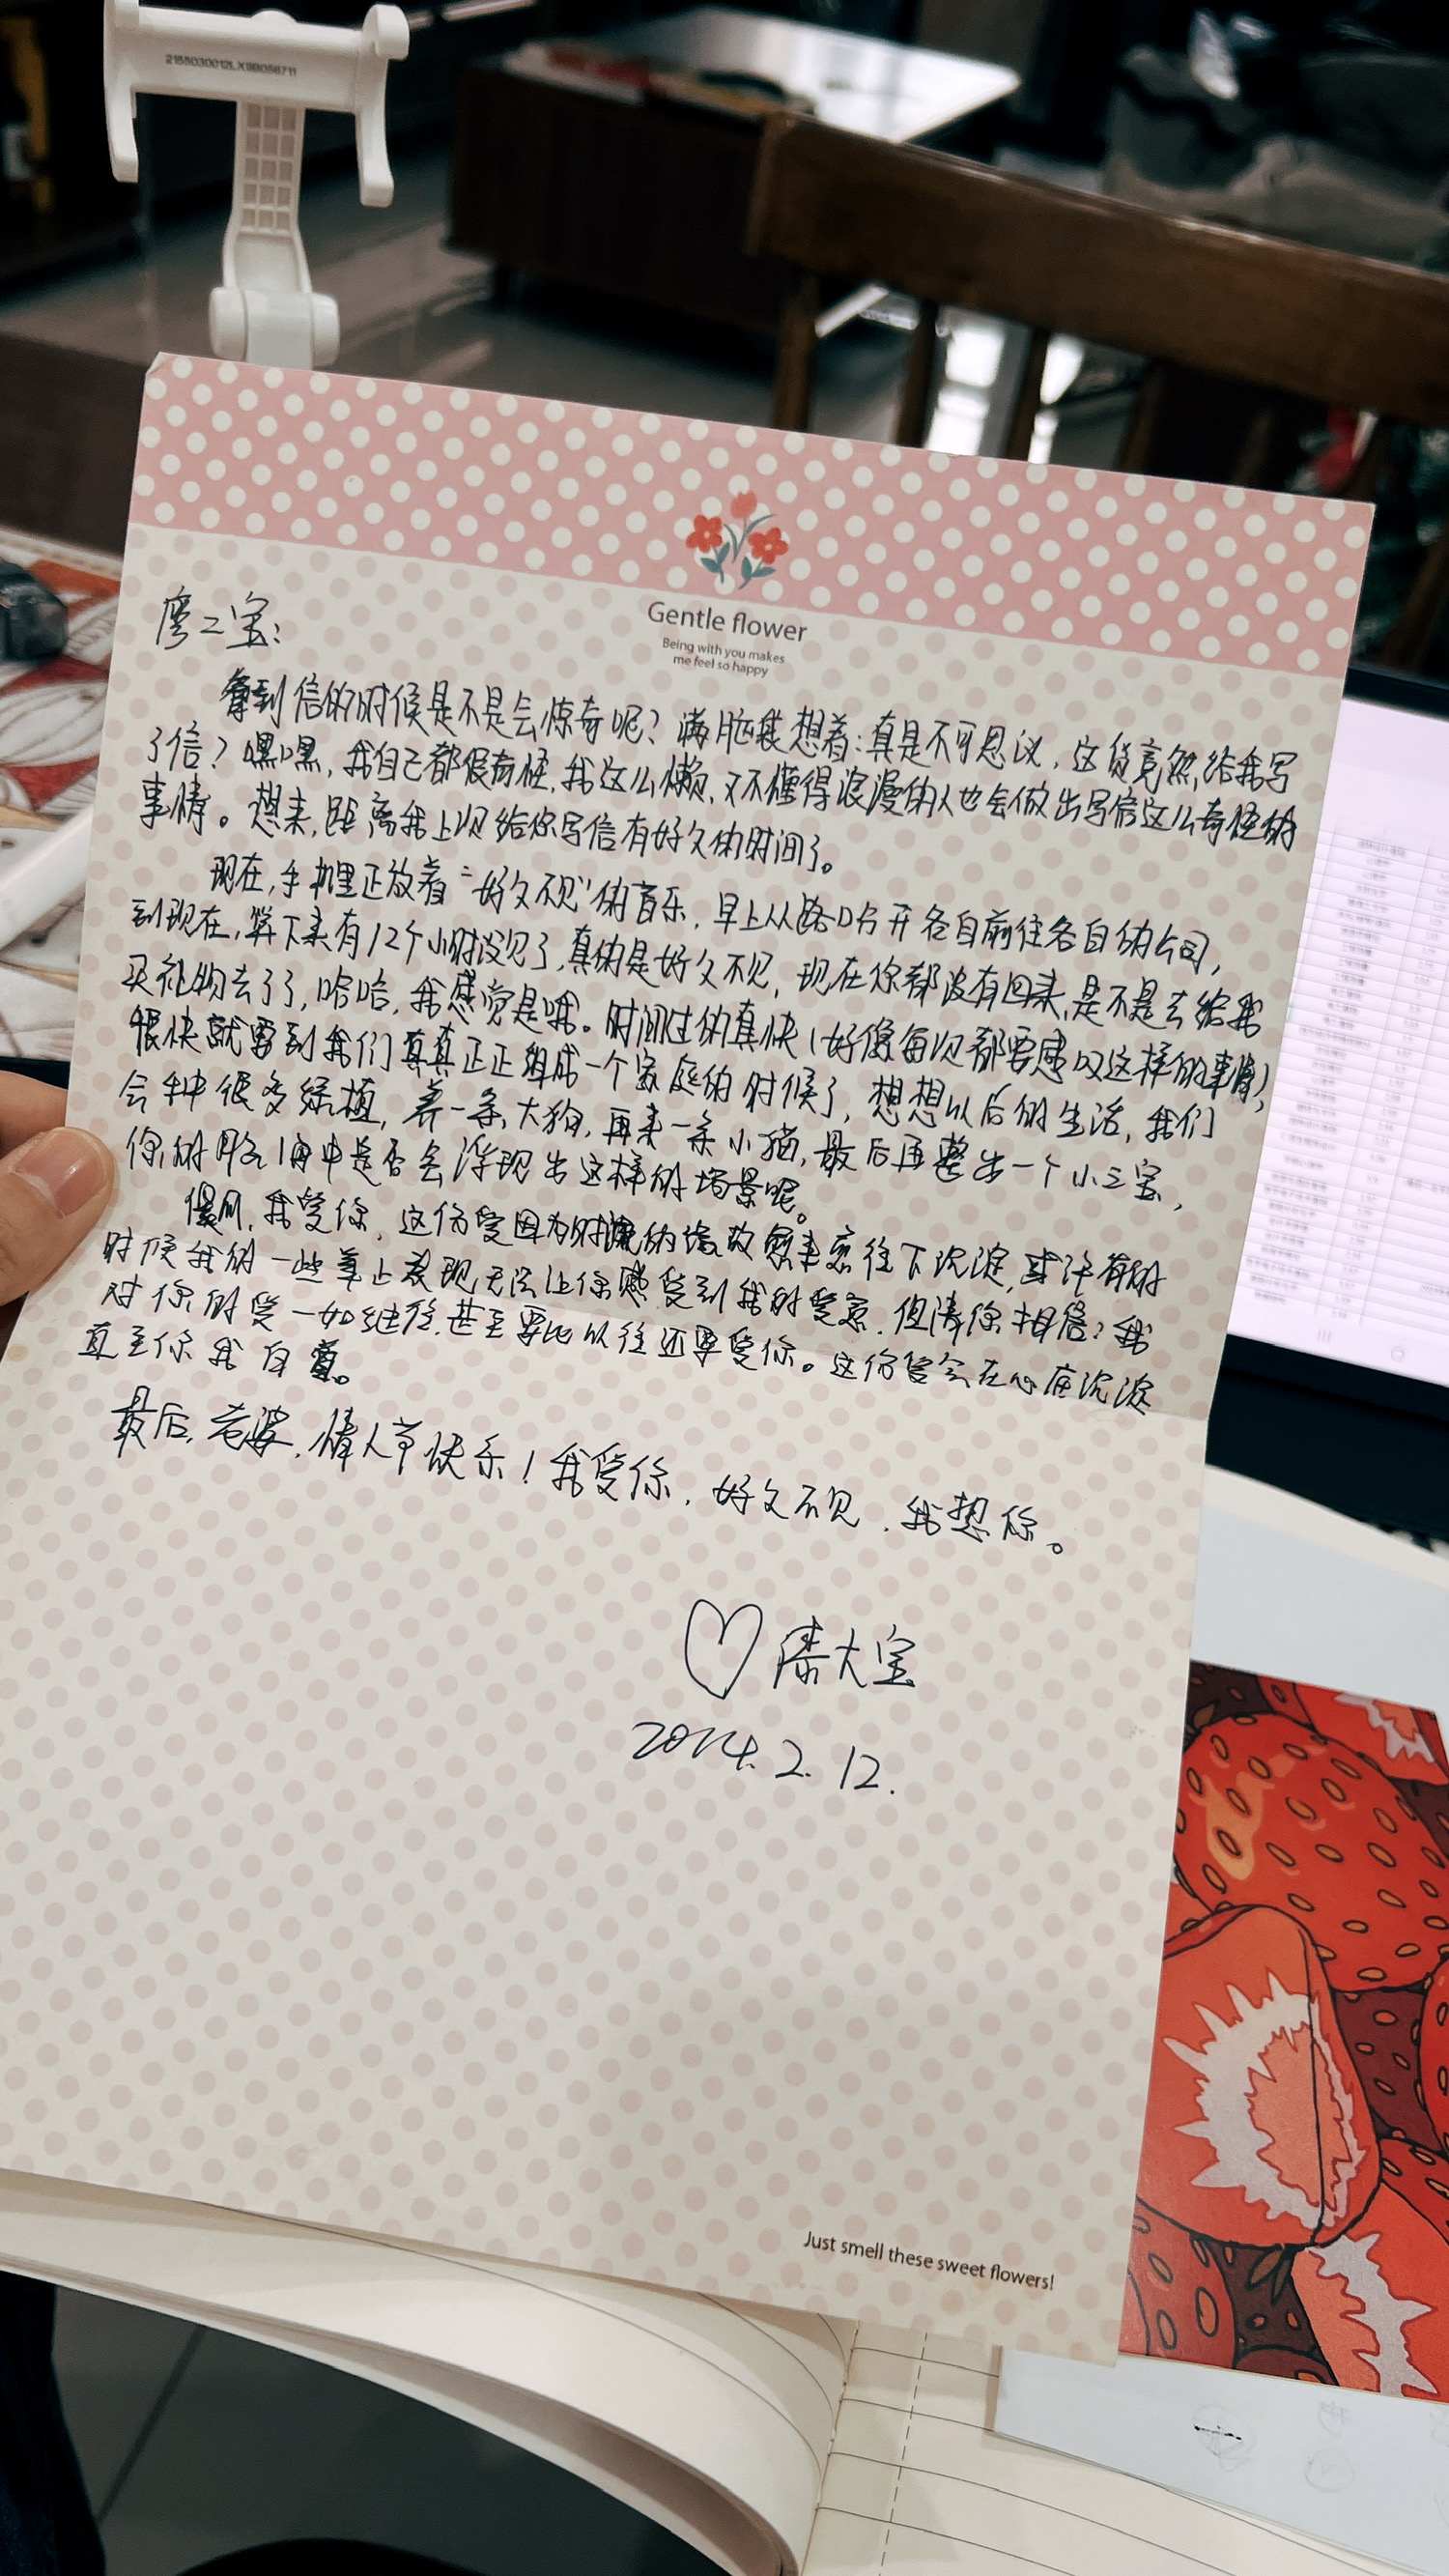 2155030012LX9B056711
Gentle flower
Being with you makes
me feel so happy
廖二宝:
拿到信的时候是不是会惊奇呢?满脑袋想着:真是不可思议,这货竟然给我写
了信?嘿嘿,我自己都很奇怪,我这么懒,又不懂得浪漫的人也会做出写信这么奇怪的
事情。想来,距离我上次给你写信有好久的时间了。
现在,手机里正放着“好久不见”的音乐,早上从路口分开各自前往各自的公司,
到现在,算下来有12个小时没见了,真的是好久不见,现在你都没有回来,是不是去给我
买礼物去了,哈哈,我感觉是哦。时间过的真快(好像每次都要感叹这样的事情)
很快就要到我们真真正正组成一个家庭的时候了,想想以后的生活,我们
会种很多绿植,养一条大狗,再来一条小猫,最后再整出一个小三宝,
你的脑海中是否会浮现出这样的场景呢。
我爱你,这份爱因为时间的缘故愈来愈往下沉淀,或许有的
时候我的一些举止表现无法让你感受到我的爱意,但请你相信:我
对你的爱一如继往,甚至要比以往还要爱你。这份爱会在心底沉淀
直至你我白首。
最后,老婆,情人节快乐!我爱你,好久不见,我想你。
大宝
2024.2.12.
Just smell these sweet flowers!